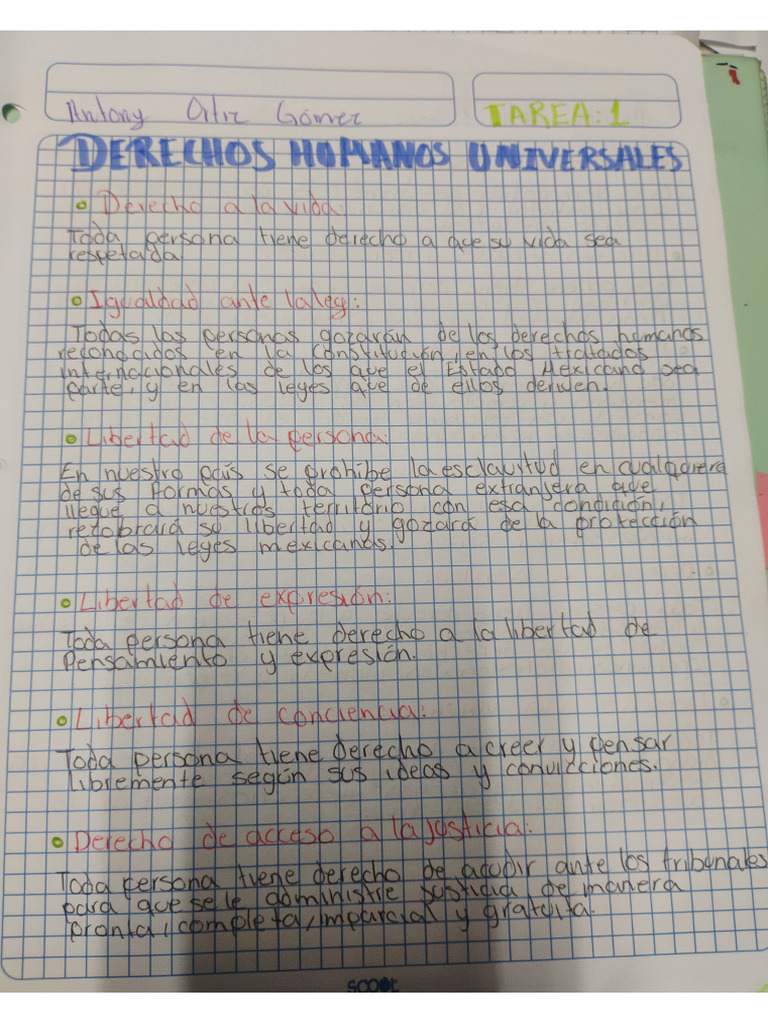 Antony Ortiz Gómez
TAREA: 1
DERECHOS HUMANOS UNIVERSALES
Derecho a la vida:
Toda persona tiene derecho a que su vida sea
respetada.
Igualdad ante la ley:
Todas las personas gozarán de los derechos humanos
reconocidos en la constitución, en los tratados
internacionales de los que el Estado Mexicano sea
parte, y en las leyes que de ellos deriven.
Libertad de la persona:
En nuestro país se prohibe la esclavitud en cualquiera
de sus formas y toda persona extranjera que
llegue a nuestros territorio con esa condición,
recobrará su libertad y gozará de la protección
de las leyes mexicanas.
Libertad de expresión:
Toda persona tiene derecho a la libertad de
Pensamiento y expresión.
Libertad de conciencia:
Toda persona tiene derecho a creer y pensar
libremente según sus ideas y convicciones.
Derecho de acceso a la justicia:
Toda persona tiene derecho de acudir ante los tribunales
para que se le administre justicia de manera
pronta, completa, imparcial y gratuita.